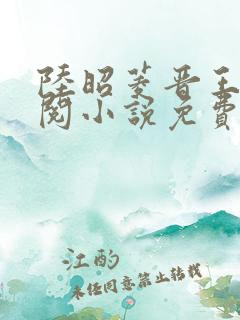 陸昭菱晋王
閱小說免費
江酌
未任同意禁止转载